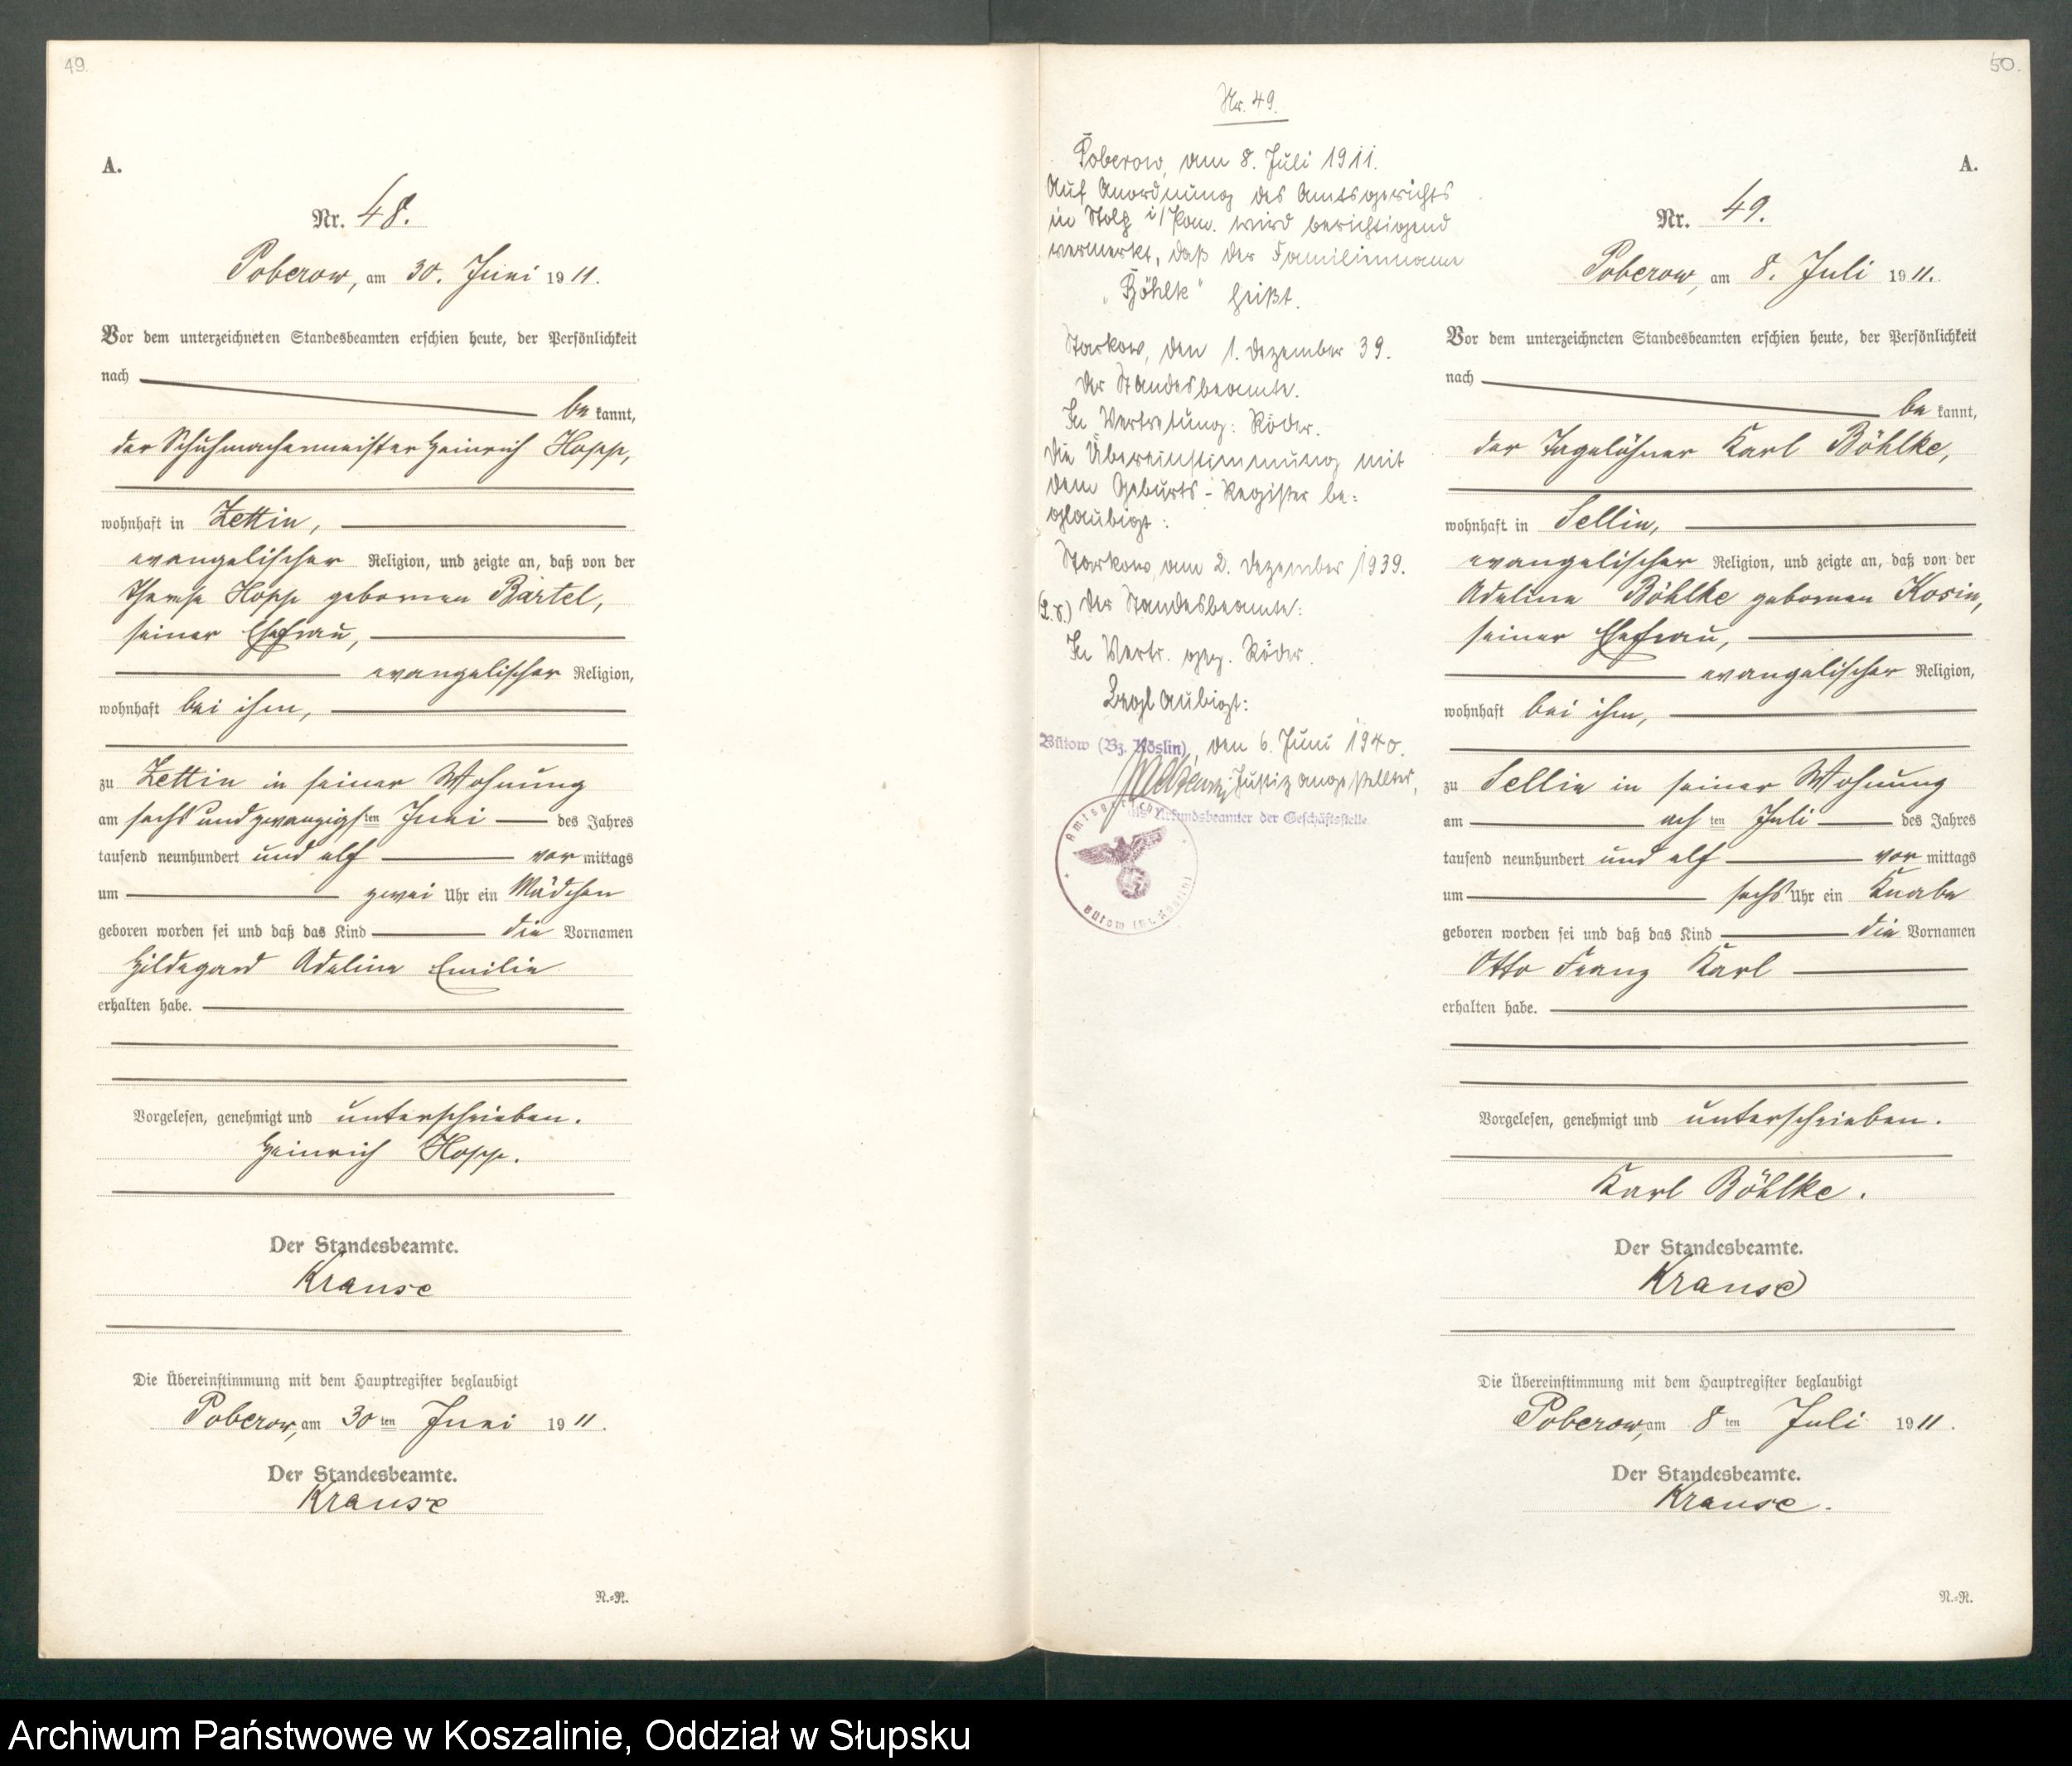 49.
A.
Nr. 48.
Poberow, am 30. Juni 1911.
Vor dem unterzeichneten Standesbeamten erschien heute, der Persönlichkeit
nach
be kannt,
der Schuhmachermeister Heinrich Hopp,
wohnhaft in Zettin,
evangelischer Religion, und zeigte an, daß von der
Therese Hopp geborenen Bartel,
seiner Ehefrau,
evangelischer Religion,
wohnhaft bei ihm,
zu Zettin in seiner Wohnung
am sechsundzwanzigsten Juni des Jahres
tausend neunhundert und elf vor mittags
um zwei Uhr ein Mädchen
geboren worden sei und daß das Kind die Vornamen
Hildegard Adeline Emilie
erhalten habe.
Vorgelesen, genehmigt und unterschrieben.
Heinrich Hopp.
Der Standesbeamte.
Krause
Die Übereinstimmung mit dem Hauptregister beglaubigt
Poberow, am 30ten Juni 1911.
Der Standesbeamte.
Krause
N.-R.
Nr. 49.
Poberow, am 8. Juli 1911.
Auf Anordnung des Amtsgerichts
in Stolp i/Pom. wird berichtigend
vermerkt, daß der Familienname
"Böhlk" heißt.
Starkow, den 1. Dezember 39.
Der Standesbeamte.
In Vertretung: Röder.
Die Übereinstimmung mit
dem Geburts-Register be=
glaubigt:
Starkow, am 2. Dezember 1939.
(L.S.) Der Standesbeamte:
In Vertr. gez. Röder.
Beglaubigt:
Bütow (Bz. Köslin), den 6. Juni 1940.
Justizangestellter,
als Urkundsbeamter der Geschäftsstelle
Amtsgericht
Bütow (Bz. Köslin)
50.
A.
Nr. 49.
Poberow, am 8. Juli 1911.
Vor dem unterzeichneten Standesbeamten erschien heute, der Persönlichkeit
nach
be kannt,
der Tagelöhner Karl Böhlke,
wohnhaft in Sellin,
evangelischer Religion, und zeigte an, daß von der
Adeline Böhlke geborenen Kosin,
seiner Ehefrau,
evangelischer Religion,
wohnhaft bei ihm,
zu Sellin in seiner Wohnung
am ach ten Juli des Jahres
tausend neunhundert und elf vor mittags
um sechs Uhr ein Knabe
geboren worden sei und daß das Kind die Vornamen
Otto Franz Karl
erhalten habe.
Vorgelesen, genehmigt und unterschrieben.
Karl Böhlke.
Der Standesbeamte.
Krause
Die Übereinstimmung mit dem Hauptregister beglaubigt
Poberow, am 8ten Juli 1911.
Der Standesbeamte.
Krause.
N.-R.
Archiwum Państwowe w Koszalinie, Oddział w Słupsku